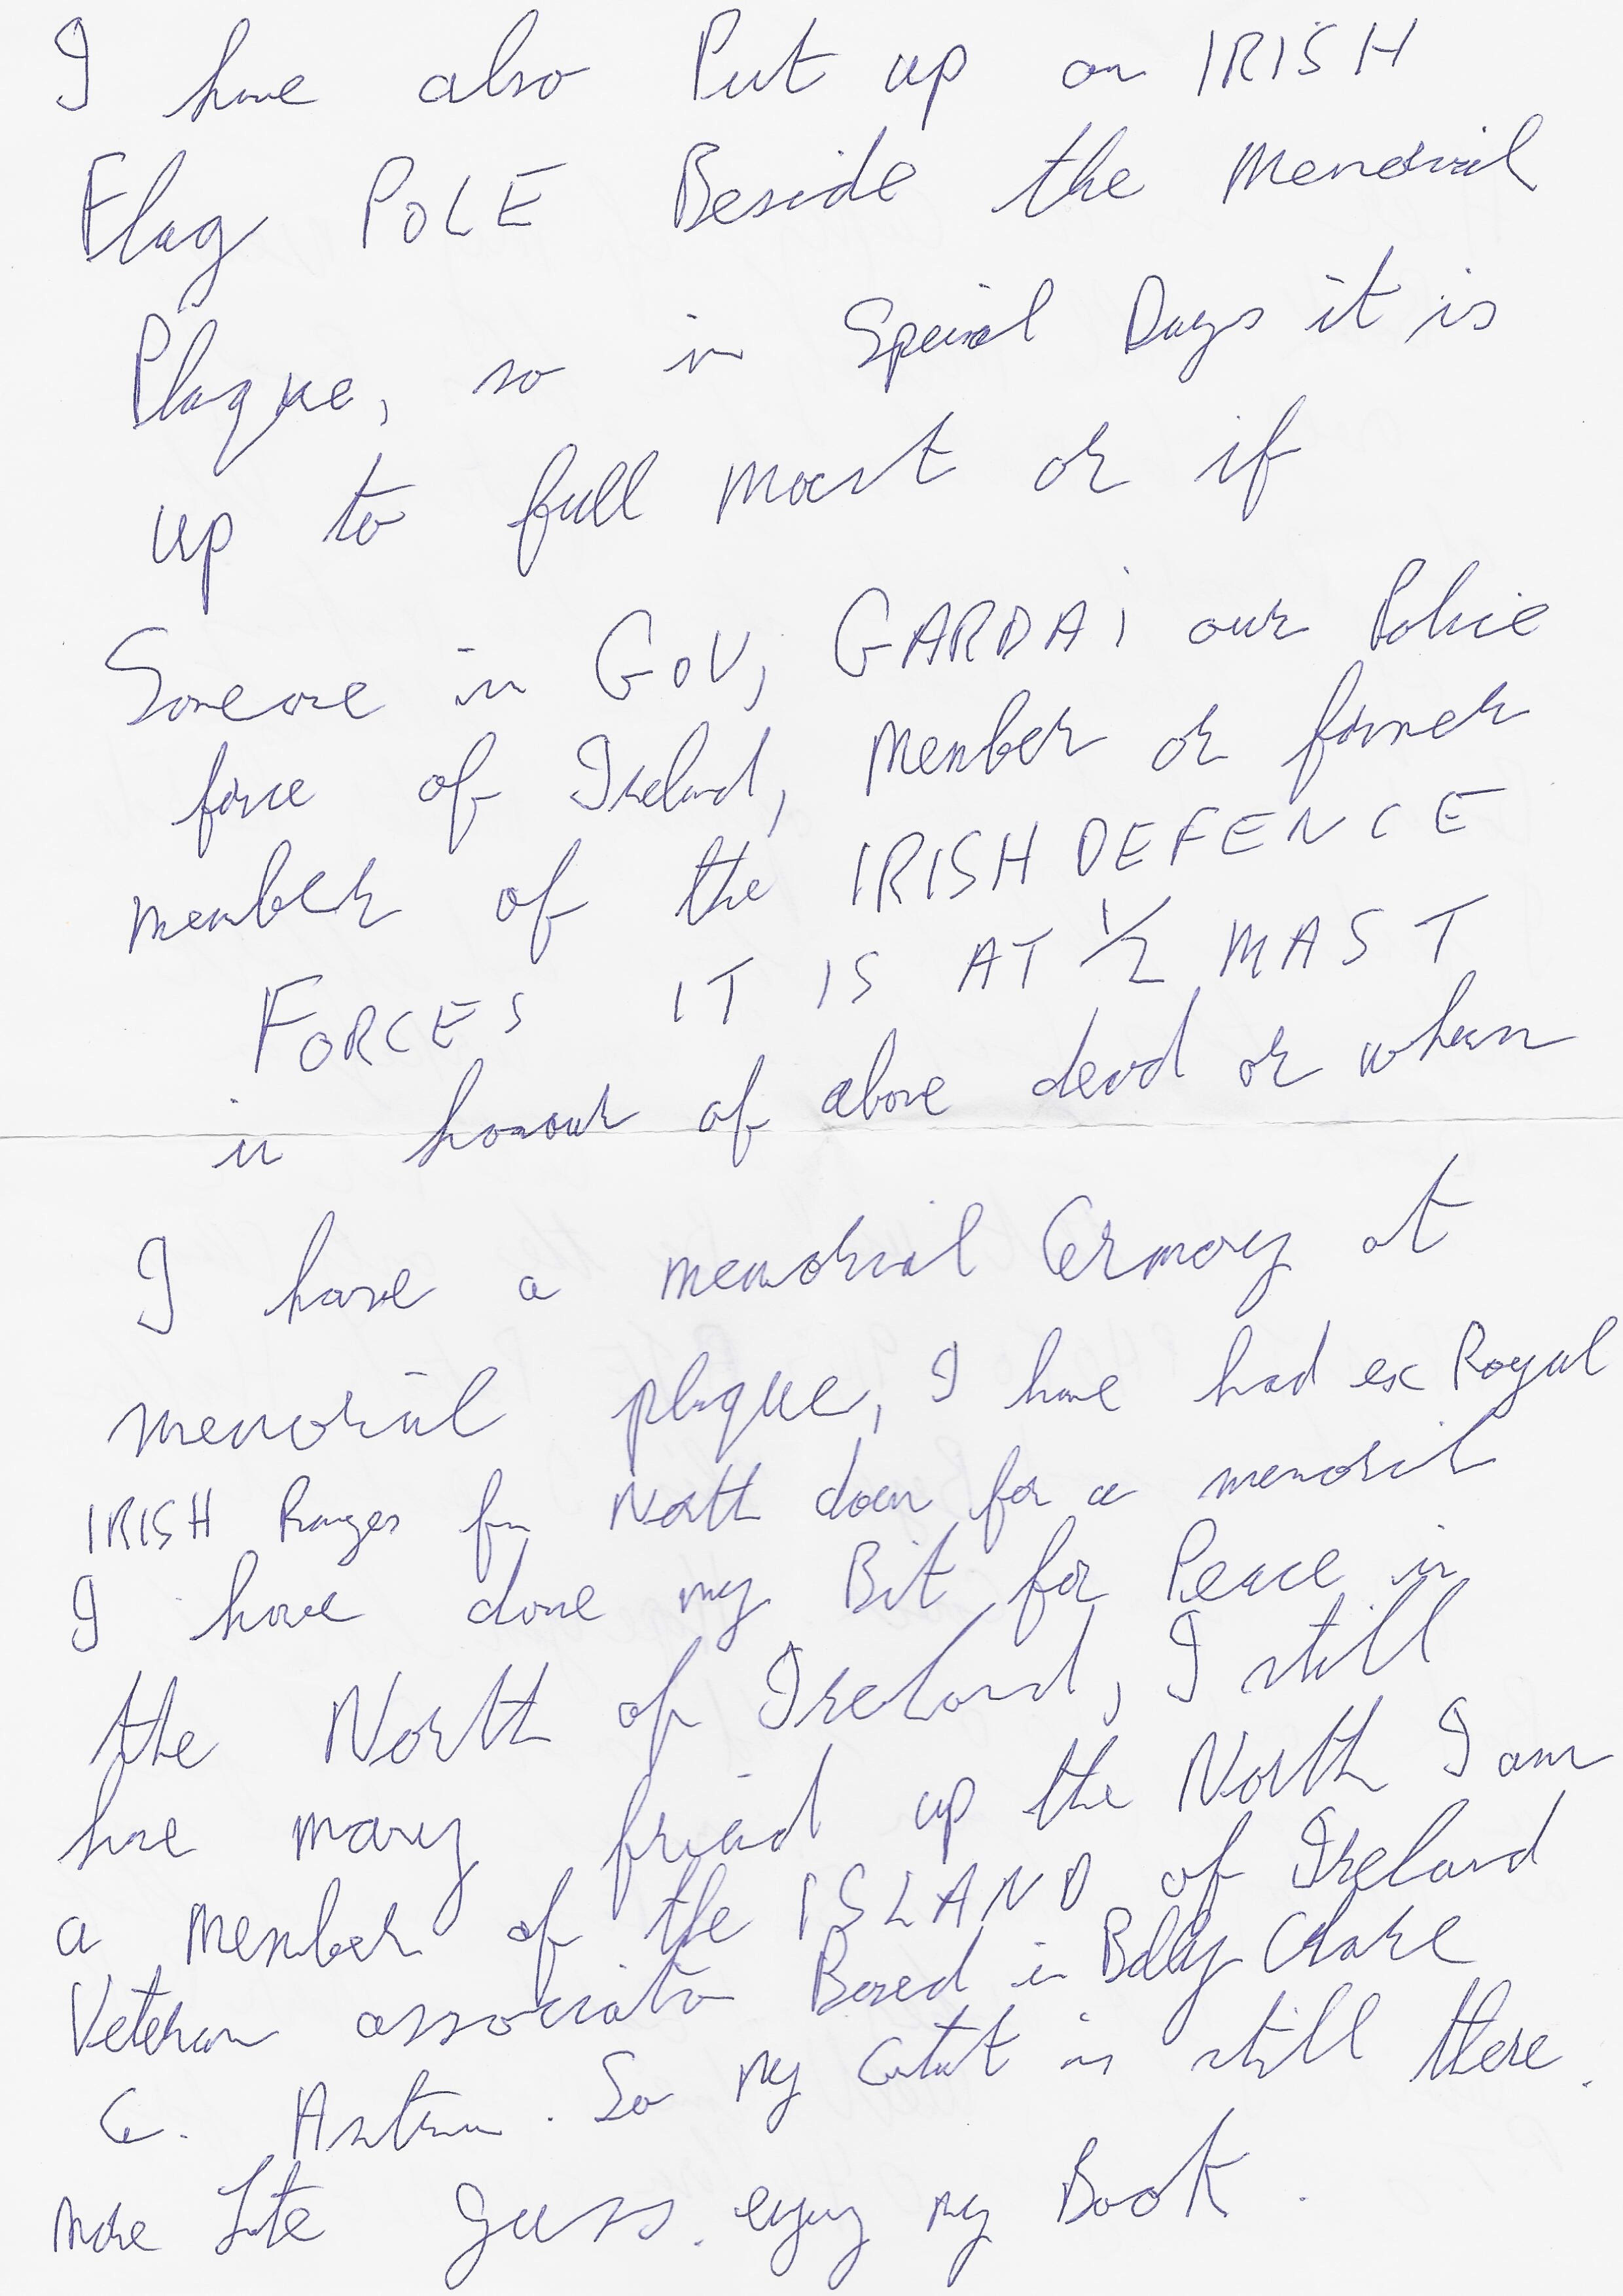 I have also Put up an IRISH
Flag POLE Beside the Memorial
Plaque, so in Special Days it is
up to full mast or if
Someone in GOV, GARDAI our Police
force of Ireland, Member or former
member of the IRISH DEFENCE
FORCES IT IS AT 1/2 MAST
in honour of above dead or when
I have a memorial Cermory at
memorial plaque, I have had ex Royal
IRISH Ranges from North down for a memorial
I have done my Bit for Peace in
the North of Ireland, I still
have many friend up the North I am
a Member of the ISLAND of Ireland
Veteran association Based in Bally Clare
C. Antrim. So my is still there.
more Late guess. enjoy my Book.